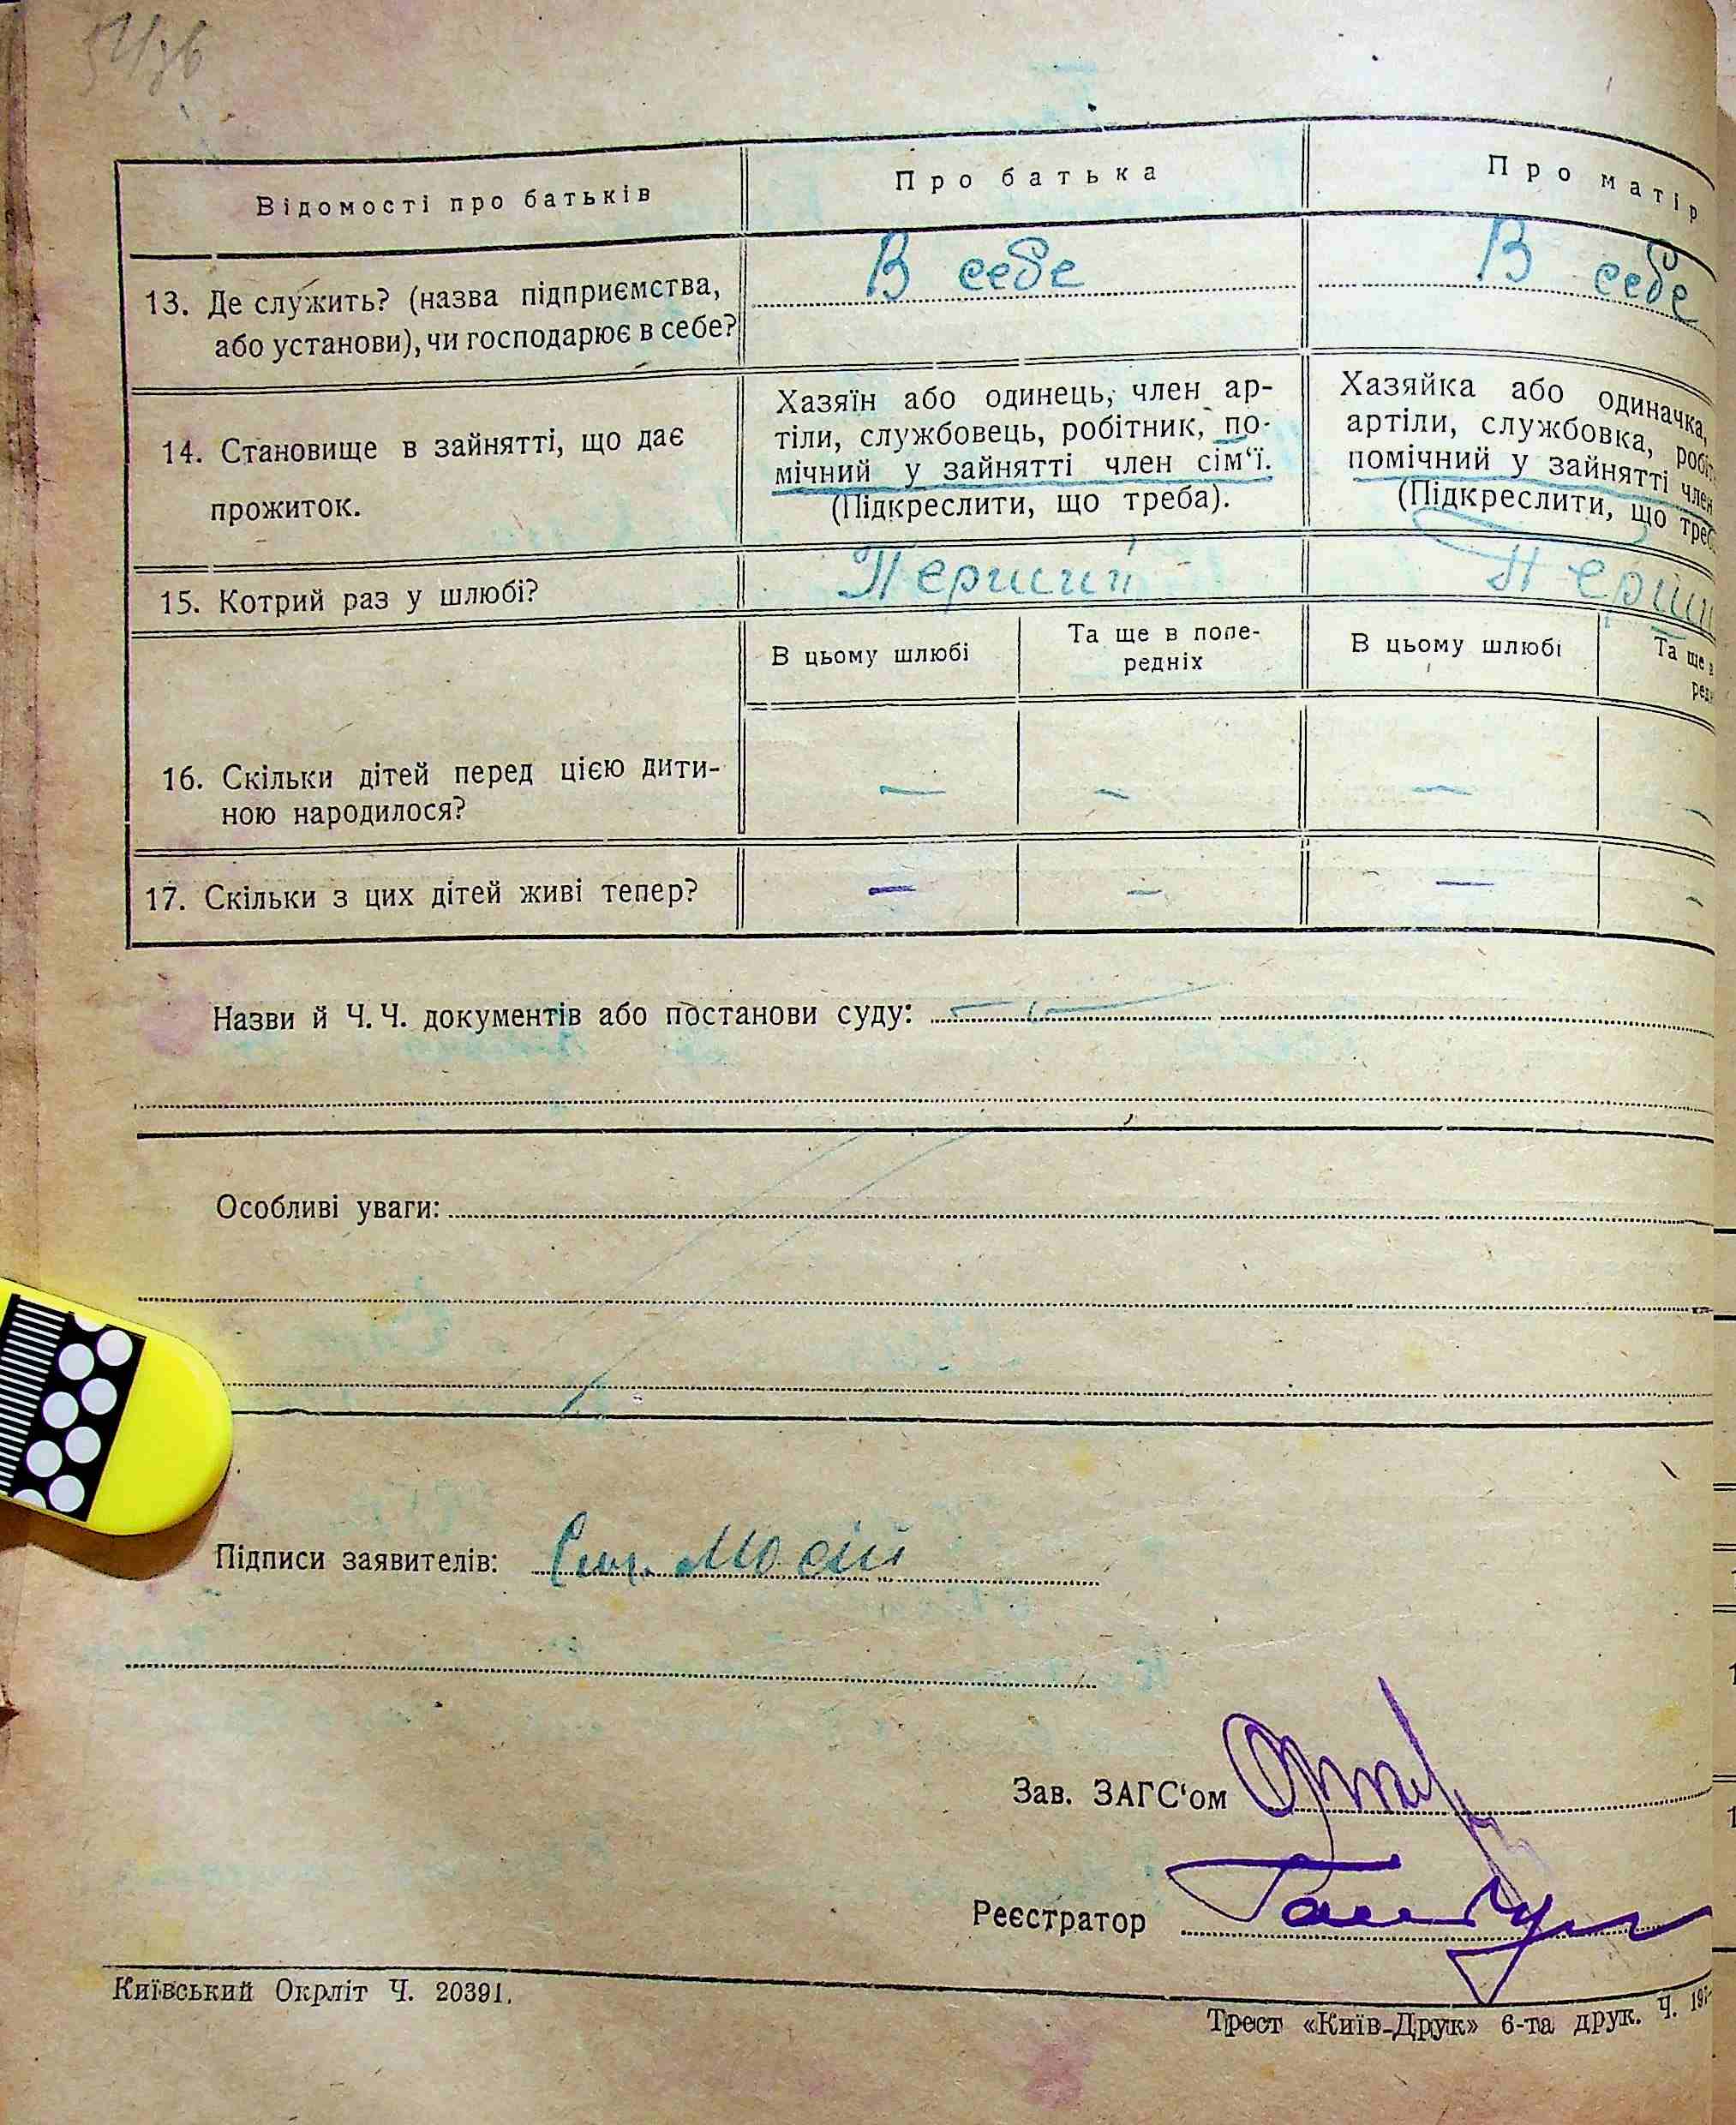 Відомості про батьків
Про батька
Про матір
13. Де служить? (назва підприємства,
або установи), чи господарює в себе?
В себе
В себе
14. Становище в зайнятті, що дає
прожиток.
Хазяїн або одинець, член ар-
тіли, службовець, робітник, по-
мічний у зайнятті член сім‘ї.
(Підкреслити, що треба).
Хазяйка або одиначка,
артіли, службовка, робіт
помічний у зайнятті член
(Підкреслити, що треб
15. Котрий раз у шлюбі?
Перший
Перши
В цьому шлюбі
Та ще в попе-
редніх
В цьому шлюбі
Та ще в
ред
16. Скільки дітей перед цією дити-
ною народилося?
—
—
—
—
17. Скільки з цих дітей живі тепер?
—
—
—
—
Назви й Ч. Ч. документів або постанови суду:
Особливі уваги:
Підписи заявителів:
Зав. ЗАГС‘ом
Реєстратор
Київський Окрліт Ч. 20391.
Трест «Київ-Друк» 6-та друк. Ч. 19